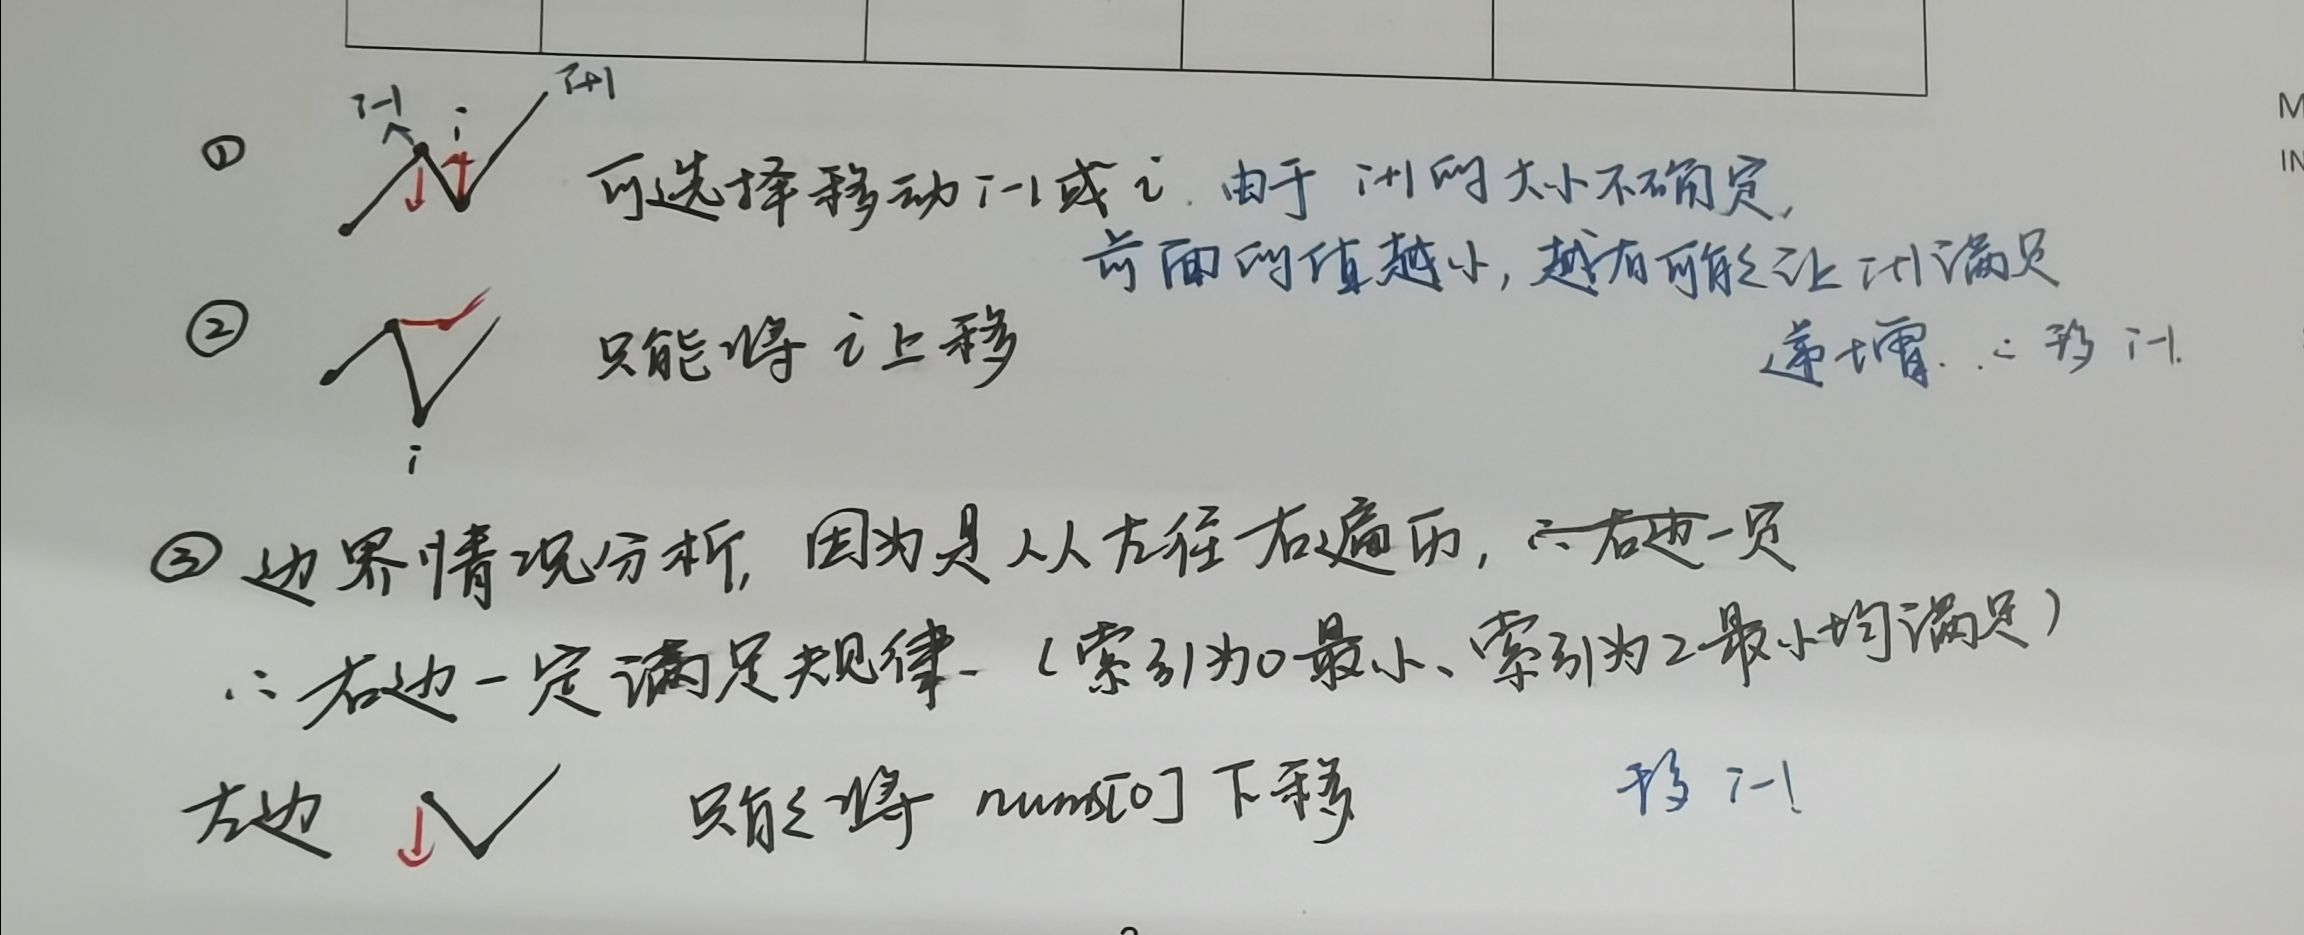 i-1 i i+1
① 可选择移动i-1或i. 由于 i+1的大小不确定,
前面的值越小, 越有可能让i+1满足
递增. ∴ 移 i-1.
② 只能将 i上移
i
③ 边界情况分析, 因为是从左往右遍历, ∴右边一定
∴ 右边一定满足规律. (索引为0最小、索引为2最小均满足)
左边 只能将 nums[0]下移 移 i-1
M
IN